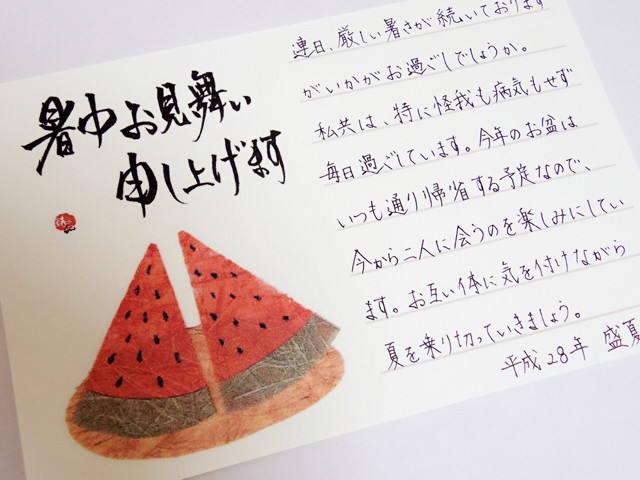 暑中お見舞い
申し上げます
連日、厳しい暑さが続いております
がいかがお過ごしでしょうか。
私共は、特に怪我も病気もせず
毎日過ごしています。今年のお盆は
いつも通り帰省する予定なので、
今から二人に会うのを楽しみにしてい
ます。お互い体に気を付けながら
夏を乗り切っていきましょう。
平成28年 盛夏